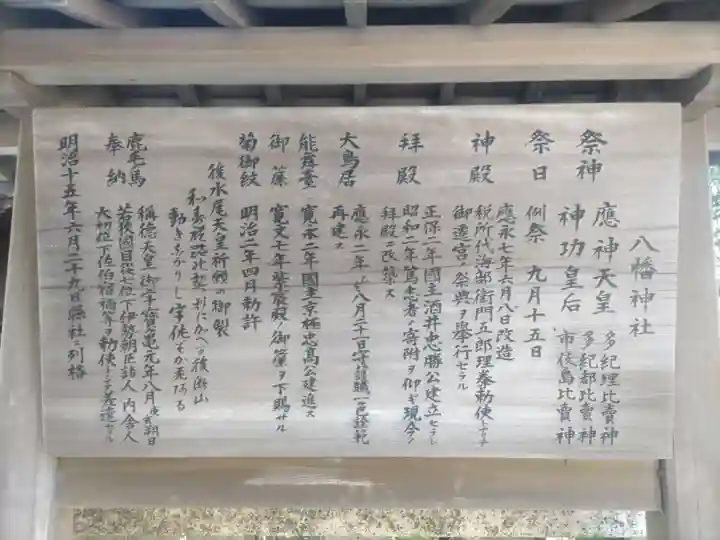 八幡神社
祭神 應神天皇 多紀理比賣神
神功皇后 多紀都比賣神
市伎島比賣神
祭日 例祭 九月十五日
神殿 應永七年六月八日改造
税所代海部衛門五郎理拳勅使トナリ
御遷宮ノ祭典ヲ擧行セラル
拝殿 正保二年國主酒井忠勝公建立セラレ
昭和二年篤志者ノ寄附ヲ仰ギ現今ノ
拝殿ニ改築ス
大鳥居 應永二年 八月二十一日守護職一色詮範
再建ス
能舞臺 寛永二年國主京極忠高公建進ス
御簾 寛文七年紫宸殿ノ御簾ヲ下賜サル
菊御紋 明治二年四月勅許
後水尾天皇祈願の御製
動きなかりし
鹿毛馬 稱德天皇御宇寶亀元年八月 朔日
奉納 若狭國目従七位下伊勢朝臣諸人 内舎人
大初位下佐伯宿禰 等ヲ勅使トシテ差遣セラル
明治十五年六月二十九日縣社ニ列格